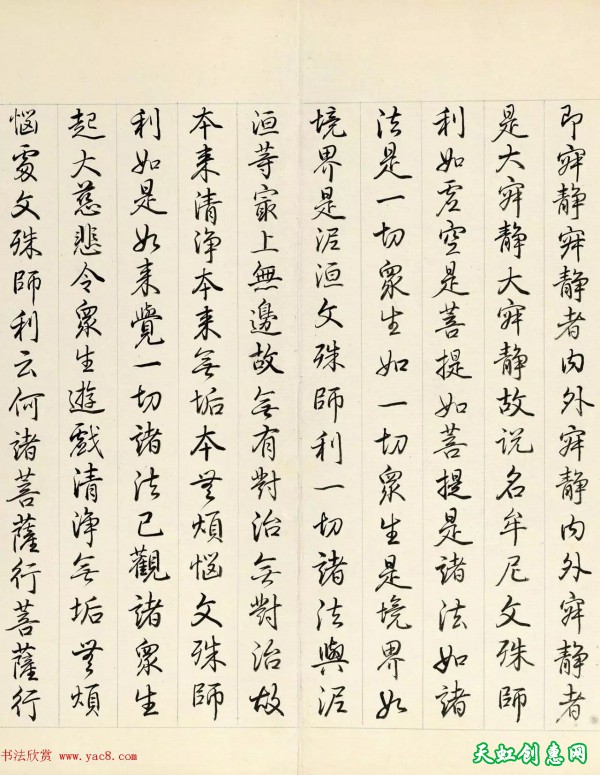 即寂静寂静者内外寂静内外寂静者
是大寂静大寂静故说名牟尼文殊師
利如虚空是菩提如菩提是諸法如諸
法是一切衆生如一切衆生是境界如
境界是泥洹文殊師利一切諸法與泥
洹等最上無邊故无有對治无對治故
本来清淨本来无垢本無煩惱文殊師
利如是如来覺一切諸法已觀諸衆生
起大慈悲令衆生遊戲清淨无垢無煩
惱處文殊師利云何諸菩薩行菩薩行
书法欣赏 www.yac8.com
天虹创惠网